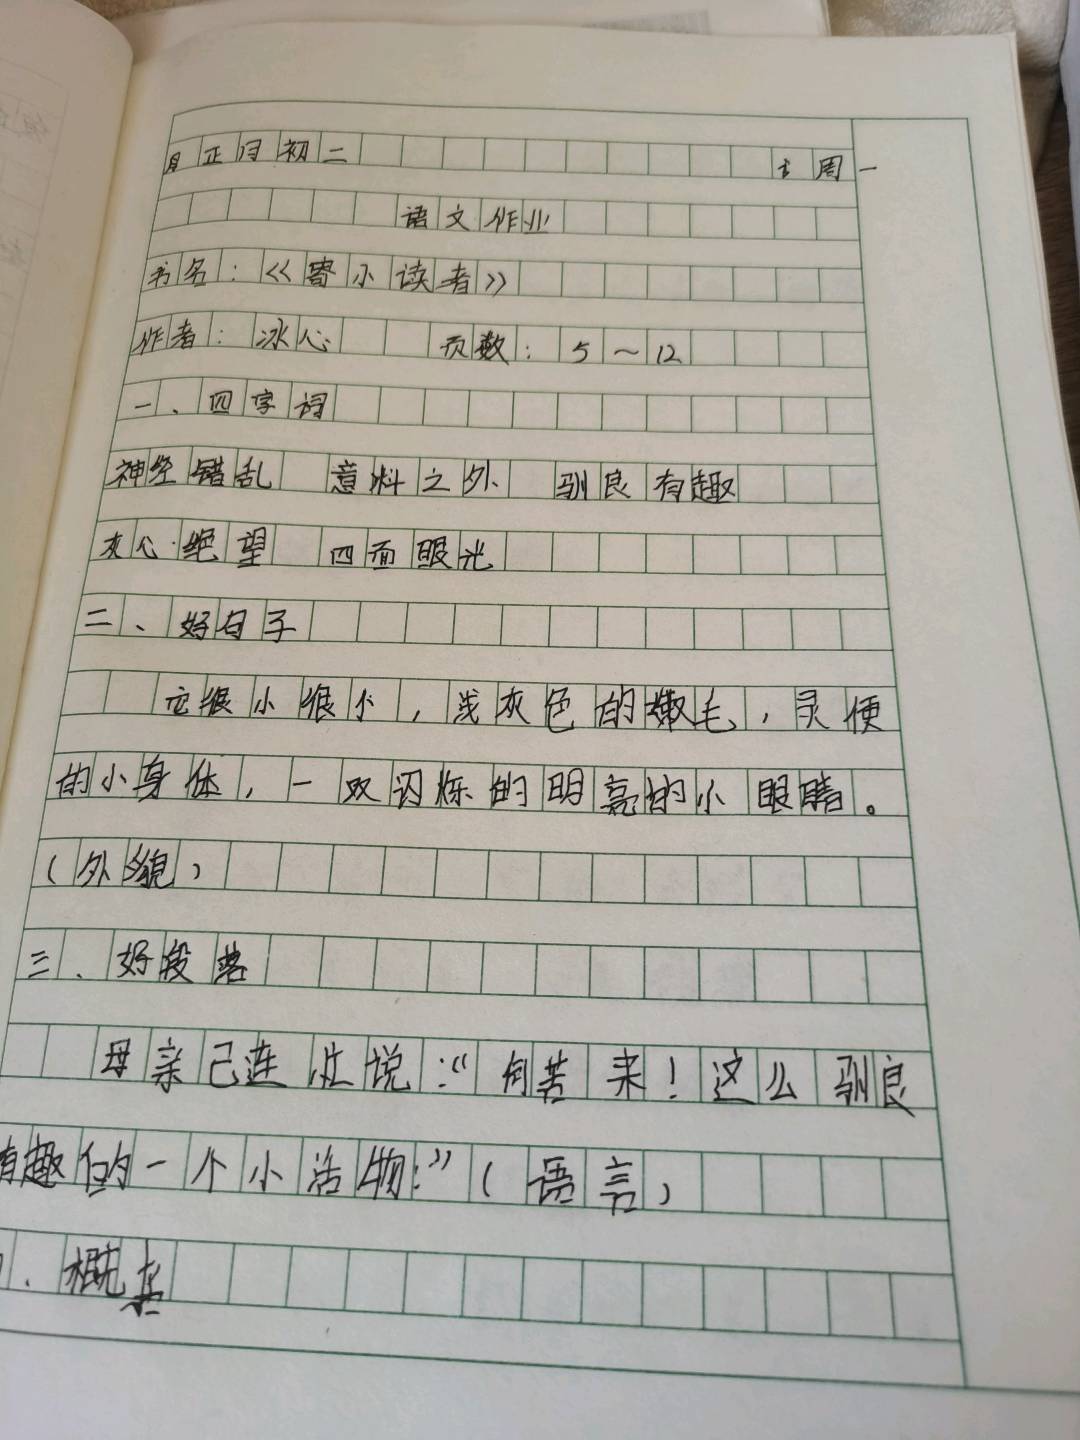 月正月初二 周一
语文作业
书名:《寄小读者》
作者:冰心 页数:5~12
一、四字词
神经错乱 意料之外 驯良有趣
灰心绝望 四面眼光
二、好句子
它很小很小,浅灰色的嫩毛,灵便
的小身体,一双闪烁的明亮的小眼睛。
(外貌)
三、好段落
母亲已连忙说:“何苦来!这么驯良
有趣的一个小活物:”(语言)
、概括